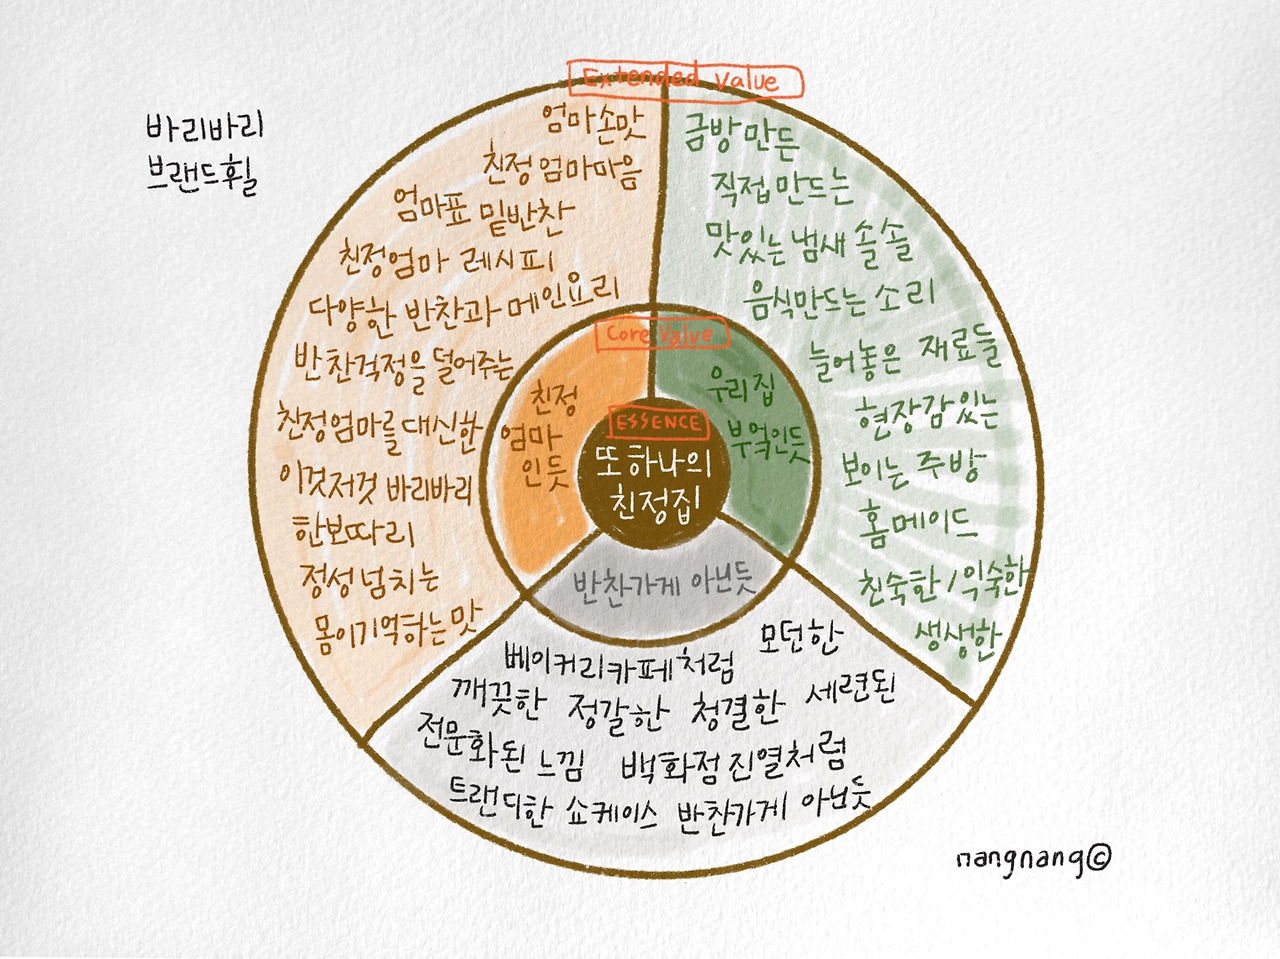 바리바리
브랜드휠
Extended Value
엄마손맛
친정 엄마마음
엄마표 밑반찬
친정엄마 레시피
다양한 반찬과 메인요리
반찬걱정을 덜어주는
친정엄마를 대신한
이것저것 바리바리
한보따리
정성넘치는
몸이기억하는맛
금방 만든
직접만드는
맛있는 냄새 솔솔
음식만드는 소리
늘어놓은 재료들
현장감있는
보이는 주방
홈메이드
친숙한 / 익숙한
생생한
Core Value
친정
엄마
인듯
우리집
부엌인듯
반찬가게 아닌듯
ESSENCE
또하나의
친정집
베이커리카페처럼 모던한
깨끗한 정갈한 청결한 세련된
전문화된 느낌 백화점 진열처럼
트랜디한 쇼케이스 반찬가게 아닌듯
nangnang©